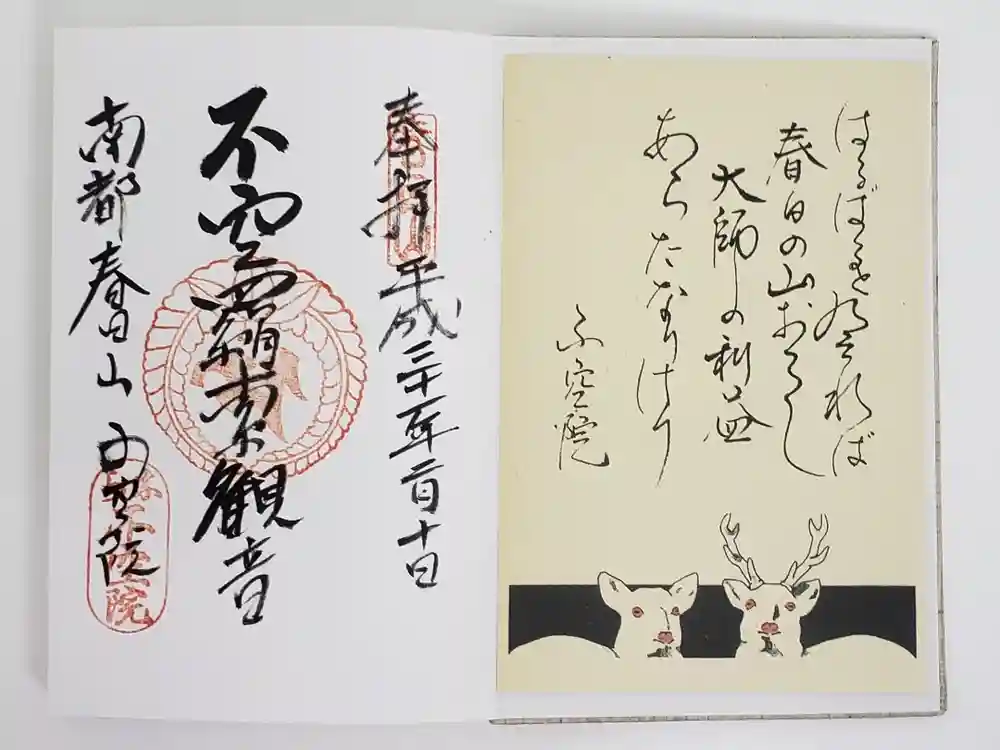 はるばると
春日の山おろし
大師の利益
あらたなりけり
不空院
奉拝 平成三十一年二月十日
不空羂索観音
南都春日山 不空院